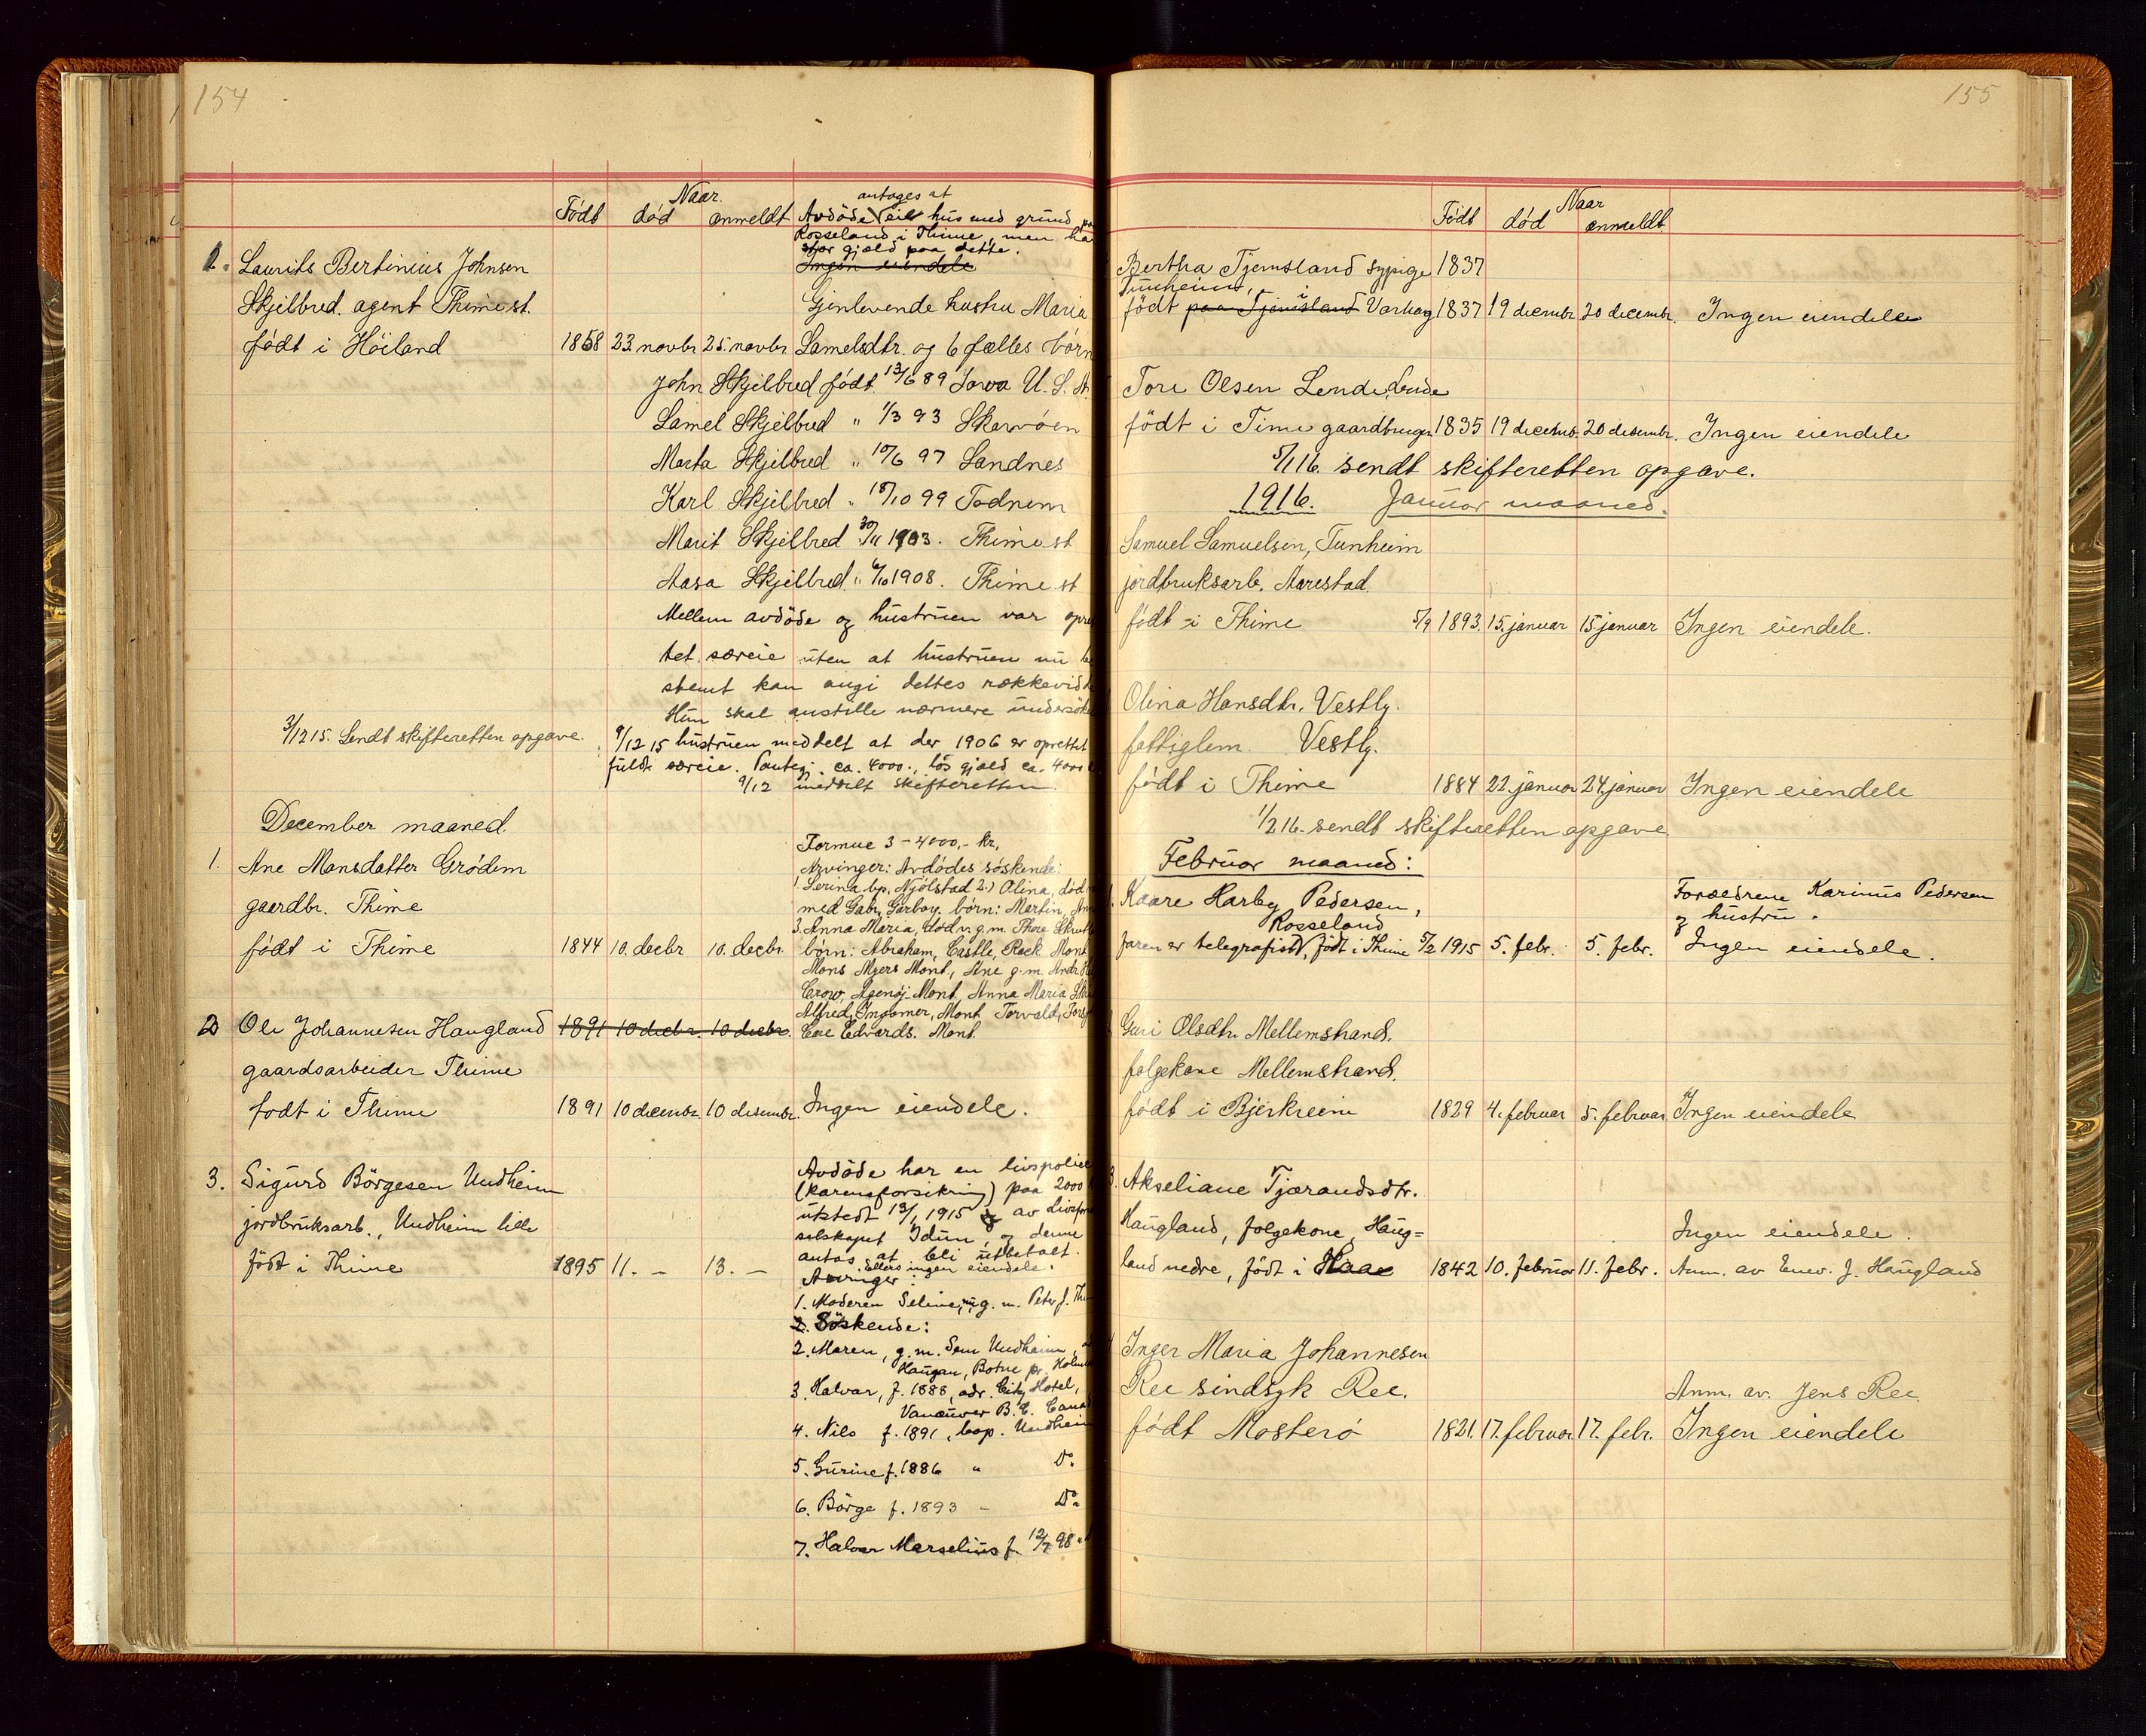 154
Naar
Född död anmeldt
antages at
Avdöde eier hus med grund paa
Rosseland i Thime, men har
stor gjæld paa dette.
Ingen eiendele
1. Laurits Bertinius Johnsen
Skjelbred. agent Thime st.
Gjenlevende hustru Maria
född i Höiland 1858 23. novbr 25. novbr Samelsdtr. og 6 fælles börn
John Skjelbred född 13/6 89 Iowa U. S. A.
Samel Skjelbred " 1/3 93 Skarvöen
Marta Skjelbred " 10/6 97 Sandnes
Karl Skjelbred " 18/10 99 Todnem
Marit Skjelbred 30/11 1903. Thime st
Aasa Skjelbred " 6/10 1908. Thime st
Mellem avdöde og hustruen var opret
tet særeie uten at hustruen nu be
stemt kan angi dettes rækkevidde
Hun skal anstille nærmere undersök
3/12 15. Sendt skifteretten opgave.
9/12 15 hustruen meddelt at der 1906 er oprettet
fuldt særeie. Pantegj. ca. 4000., lös gjæld ca. 4000
9/12 meddelt skifteretten
December maaned.
Formue 3-4000,- kr.
1. Ane Monsdatter Grödem
Arvinger: Avdödes söskende:
1. Serina, bp. Njölstad 2.) Olina, död
gaardbr. Thime
med Gabr. Garboy, börn: Martin,
3. Anna Maria, död v. g. m. Thore
född i Thime 1844 10. decbr 10. decbr.
börn: Abraham, Castle, Rock Mont
Mons Myers Mont, Ane g. m. Andr.
Crow, Agency-Mont. Anna Maria
Alfred, Ingomer, Mont Torvald,
2 Ole Johannesen Haugland 1891 10 decbr. 10 decbr.
Care Edvards. Mont.
gaardsarbeider Thime
født i Thime 1891 10 decembr. 10 desembr. Ingen eiendele.
3. Sigurd Börgesen Undheim
jordbruksarb., Undheim lille
född i Thime 1895 11. - 13. -
Avdöde har en livspolice
(karensforsikring) paa 2000
utstedt 13/1 1915 av Livsfors
selskapet Idun, og denne
antas at bli utbetalt.
Ellers ingen eiendele.
Arvinger:
1. Moderen Seline, nu g. m. Peter J. Thi
2. Söskende:
2. Maren, g. m. Sem Undheim,
Haugan, Botne pr. Holme
3. Halvar, f. 1888, adr. City Hotel,
Vancuver B. C. Cana
4. Nils f. 1891, bop. Undheim
5. Gurine f. 1886 " Do
6. Börge f. 1893 " Do
7. Halvar Marselius f. 12/7 98 "
155
Naar
Född död anmeldt
Bertha Tjemsland sypige 1837
Tunheim,
född paa Tjemsland i Varhaug 1837 19 decembr. 20 decembr. Ingen eiendele
Tore Olsen Lende, Lende
född i Time gaardbruger 1835 19 decemb. 20 desembr. Ingen eiendele
5/1 16. sendt skifteretten opgave.
1916. Januar maaned.
Samuel Samuelsen, Tunheim
jordbruksarb. Aarestad.
född i Thime 5/9 1893. 15. januar 15 januar Ingen eiendele.
Olina Hansdtr. Vestly.
fattiglem. Vestly.
född i Thime 1884 22. januar 24. januar Ingen eiendele
1/2 16. sendt skifteretten opgave
Februar maaned:
Kaare Harby Pedersen,
Forældrene Karinus Pedersen
og hustru.
Rosseland
faren er telegrafist, född i Thime 5/2 1915 5. febr. 5. febr. Ingen eiendele.
Guri Olsdtr. Mellemstrand.
folgekone Mellemstrand.
född i Bjerkreim 1829 4. februar 5. februar Ingen eiendele
3. Akseliane Tjærandsdtr.
Haugland, folgekone, Haug=
Ingen eiendele.
land nedre, född i Haae 1842 10. februar 11. febr. Anm. av Enev. J. Haugland
Inger Maria Johannesen
Ree sindsyk Ree.
Anm. av. Jens Ree
född Mosterö 1821. 17. februar. 17. febr. Ingen eiendele